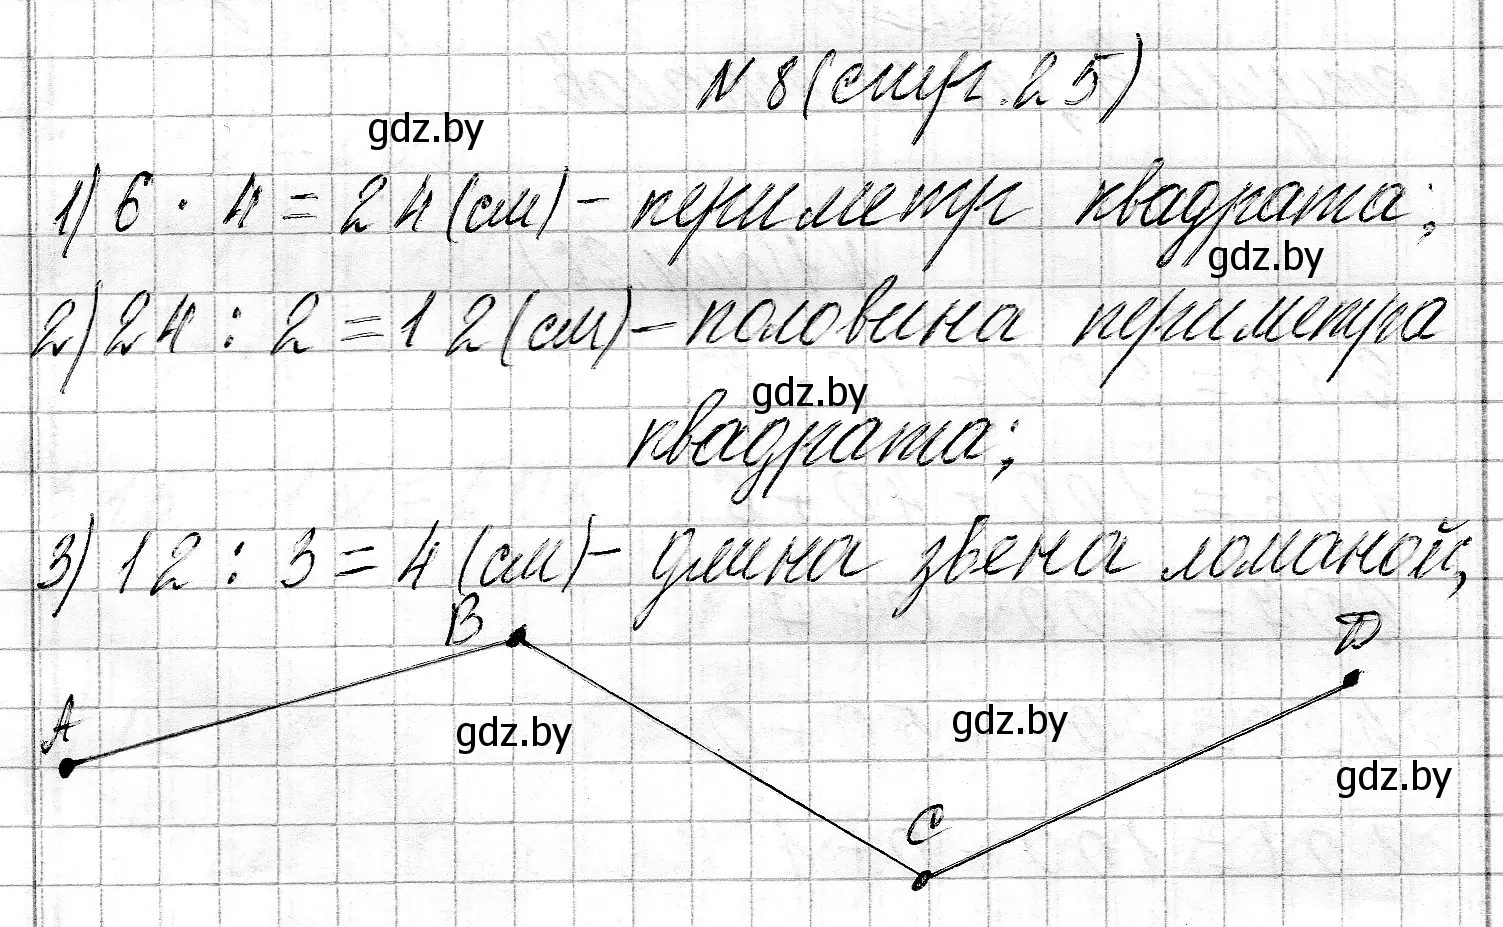 N 8 (стр. 25)
gdz.by
1) 6 · 4 = 24 (см) - периметр квадрата;
gdz.by
2) 24 : 2 = 12 (см) - половина периметра
gdz.by
квадрата;
3) 12 : 3 = 4 (см) - длина звена ломаной;
B
D
A
gdz.by
gdz.by
gdz.by
C